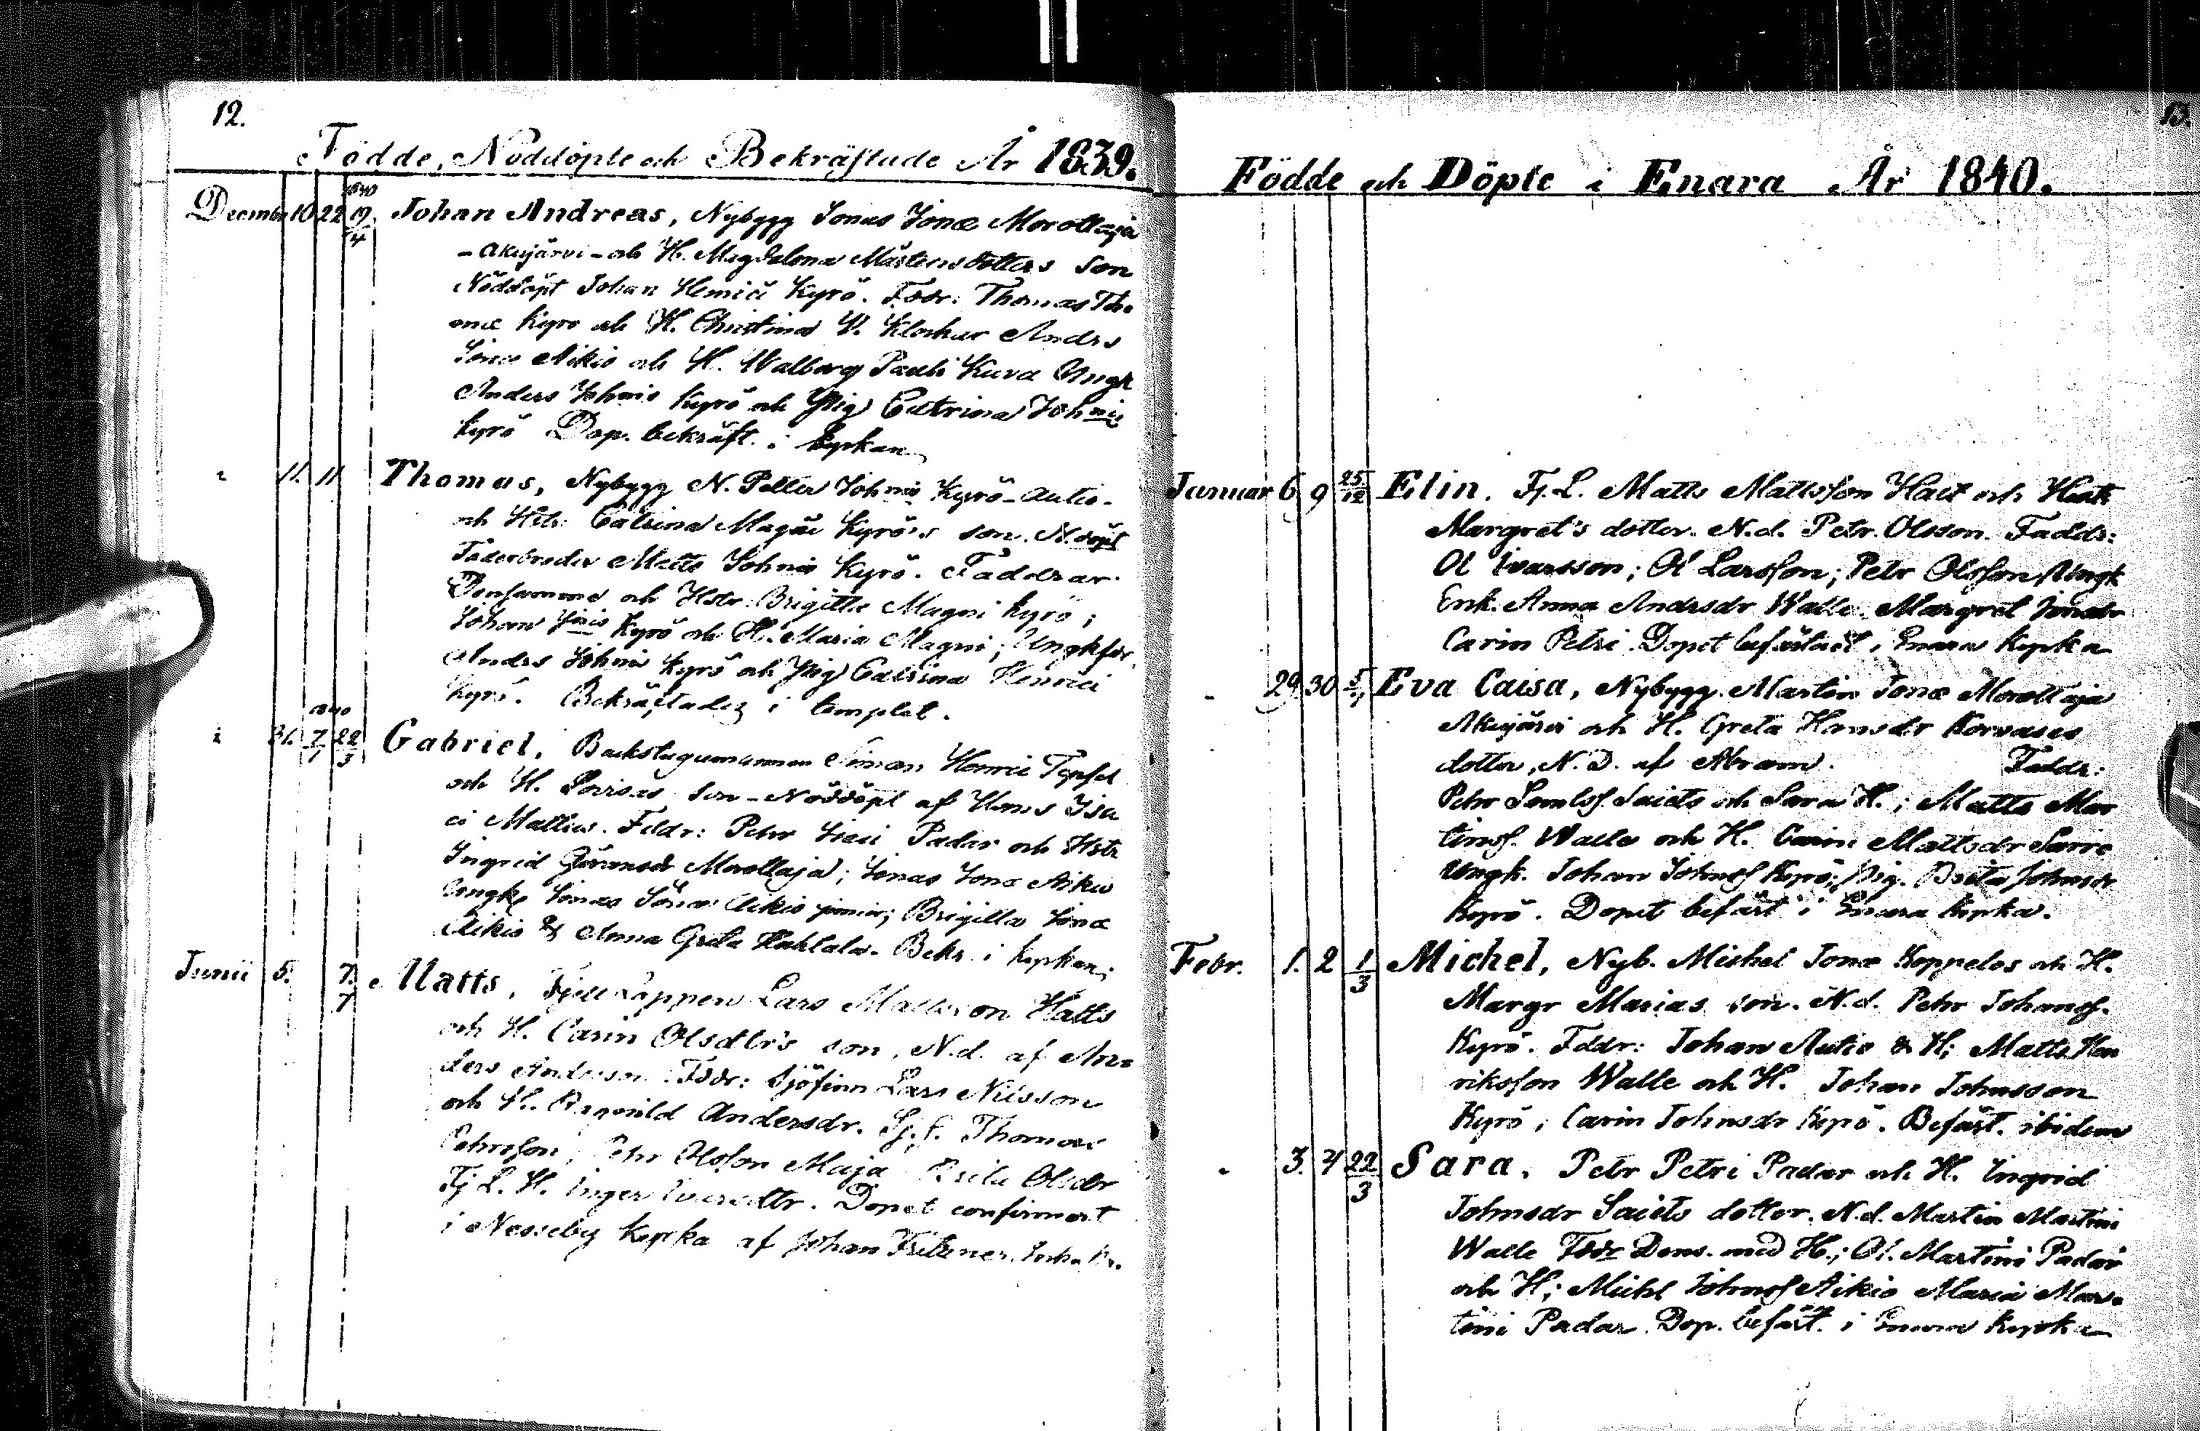 12.
Födde, Nöddöpte och Bekräftade År 1839.
1840
December 10 22 19/4 Johan Andreas, Nybygg Jonas Jonæ Morottaja
- Akujärvi - och H. Magdalena Mårtensdotters son
Nöddöpt Johan Henrici Kyrö. Fddr: Thomas Tho-
mæ Kyrö och H. Christina V. Klockar Andrs
Jonæ Aikio och H. Walborg Pauli Kuva Ungk
Anders Johnis Kyrö och Pig Catrina Johnis
Kyrö Dop. bekräft. i kyrkan
11. 11 Thomas, Nybygg N. Petter Johnis Kyrö - Autio -
och Hstr: Catrina Magni Kyrö's son. N.döpt
Faderbroder Matts Johnis Kyrö. Faddrar
Densamme och Hstr Brigitta Magni Kyrö;
Johan Kyrö och H. Maria Magni; Ungkfar.
Andrs Johnis Kyrö och Pig Catrina Henrici
Kyrö. Bekräftades i templet.
1840
31. 7/1 22/3 Gabriel, Backstugumannen Simon Henric Topfel
och H. Lovisas son - Nöddöpt af Hans Isa
ci Mattus. Fddr: Petr Isaci Padar och Hstr
Ingrid Göransdr Morottaja; Jonas Jonæ Aikio
Ungk Jonas Jonæ Aikio junior; Brigitta Jonæ
Aikio & Anna Greta Hahtala. Bekr. i kyrkan;
Junii 5. 7/7 Matts, Fjell Lappen Lars Mattsson Hatts
och H. Carin Olsdtr's son, N.d. af An-
ders Andersson. Fddr: Sjöfinn Lars Nilsson
och H. Ragnild Andersdr. Fj. L. Thomas
Pehrsson, Pehr Olsson Maja Brita Olsdr
Fj L. H. Inger Ivarsdtr. Dopet confirmert
i Nesseby kyrka af Johan Fritzner.
13.
Födde och Döpte i Enara År 1840.
Januar. 6 9 25/12 Elin. Fj. L. Matts Mattsson Hatt och Hust.
Margret's dotter. N.d. Petr. Olsson. Faddr:
Ol Ivarsson; Ol Larsson; Petr Olsson Ungk
Enk. Anna Andrsdr Walle Margret Jonsdr
Carin Petri. Dopet befästadt i Enara kyrka
29. 30 5/7 Eva Caisa, Nybygg. Martin Jonæ Morottaja
Akujärvi och H. Greta Hansdr Korvases
dotter, N. D. af Abram. Faddr:
Petr Samlss. Saiets och Sara H.; Matts Mar
tinss. Walle och H. Carin Mattsdr Sarre
Ungk. Johan Johnss Kyrö; Pig. Brita Johnsdr
Kyrö. Dopet befäst i Enara kyrka.
Febr. 1. 2 1/3 Michel, Nyb. Michel Jonæ Koppelos och H.
Margr Marias son. N.d. Petr Johanss.
Kyrö. Fddr: Johan Autio & H; Matts Hen
riksson Walle och H. Johan Johnsson
Kyrö, Carin Johnsdr Kyrö. Befäst. ibidem
3. 4 22/3 Sara, Petr Petri Padar och H. Ingrid
Johnsdr Saiets dotter. N.d. Martin Martini
Walle Fddr Dens. med H.; Ol. Martini Padar
och H; Michl Johnss Aikio Maria Mar-
tini Padar. Dop. befäst. i Enara kyrka